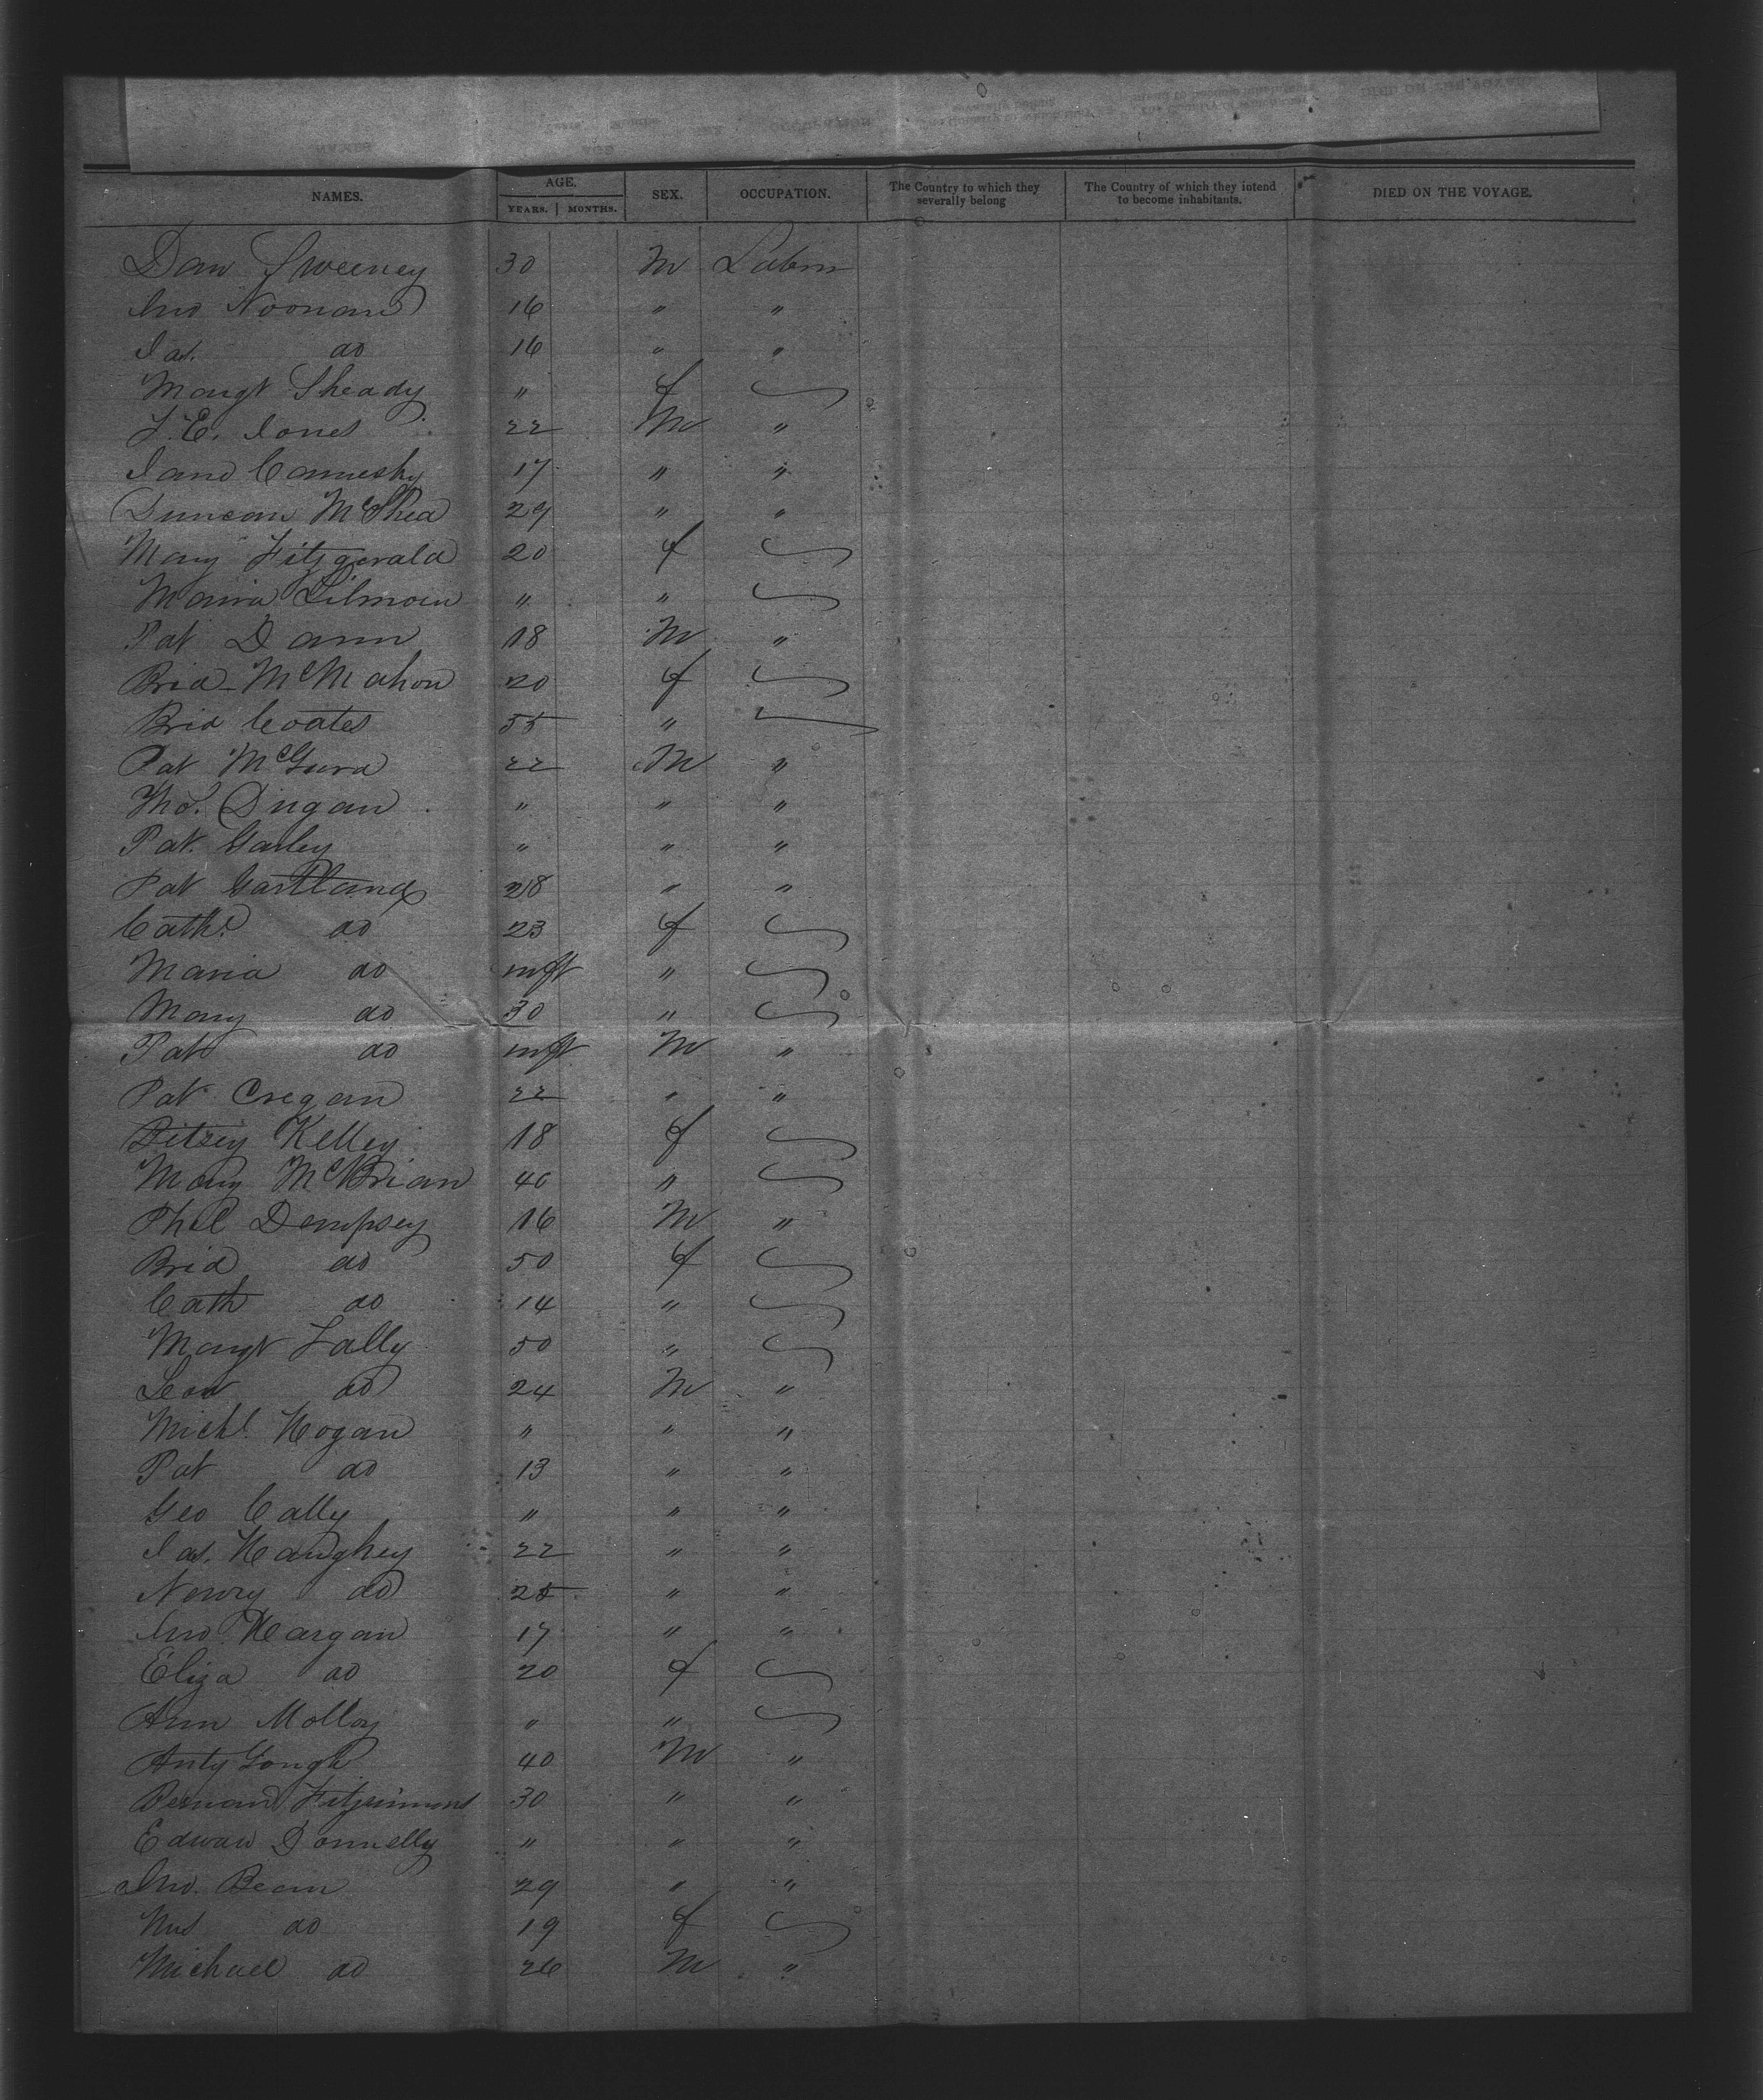 NAMES. AGE. YEARS. MONTHS. SEX. OCCUPATION. The Country to which they severally belong The Country of which they intend to become inhabitants. DIED ON THE VOYAGE.
Dan Sweeney 30 M Labor
Jno Noonan 16 " "
Jas. do 16 " "
Margt Sheady " f
J. E. Jones 22 M "
Jand 17 " "
Duncan McShea 29 " "
Mary Fitzgerald 20 f
Maria " "
Pat Dann 18 M "
Brid McMahon 20 f
Brid Coates 55 "
Pat McGurd 22 M "
Tho. Dugan " " "
Pat. Garley " " "
Pat Gartland 28 " "
Cath. do 23 f
Maria do inft "
Mary do 30 "
Pat do inft M "
Pat Cregan 22 " "
Bitzey Kelley 18 f
Mary McBrian 40 "
Phil Dempsey 16 M "
Brid do 50 f
Cath do 14 "
Margt Lally 50 "
do 24 M "
Michl. Hogan " " "
Pat do 13 " "
Geo Cally " " "
Jas. Haughey 22 " "
Henry do 25 " "
Jno Hargan 17 " "
Eliza do 20 f
Ann Molloy " "
Anty Gough 40 M "
Bernard Fitzsimons 30 " "
Edward Donnelly " " "
Jno. Bean 29 " "
Mrs do 19 f
Michael do 26 M "